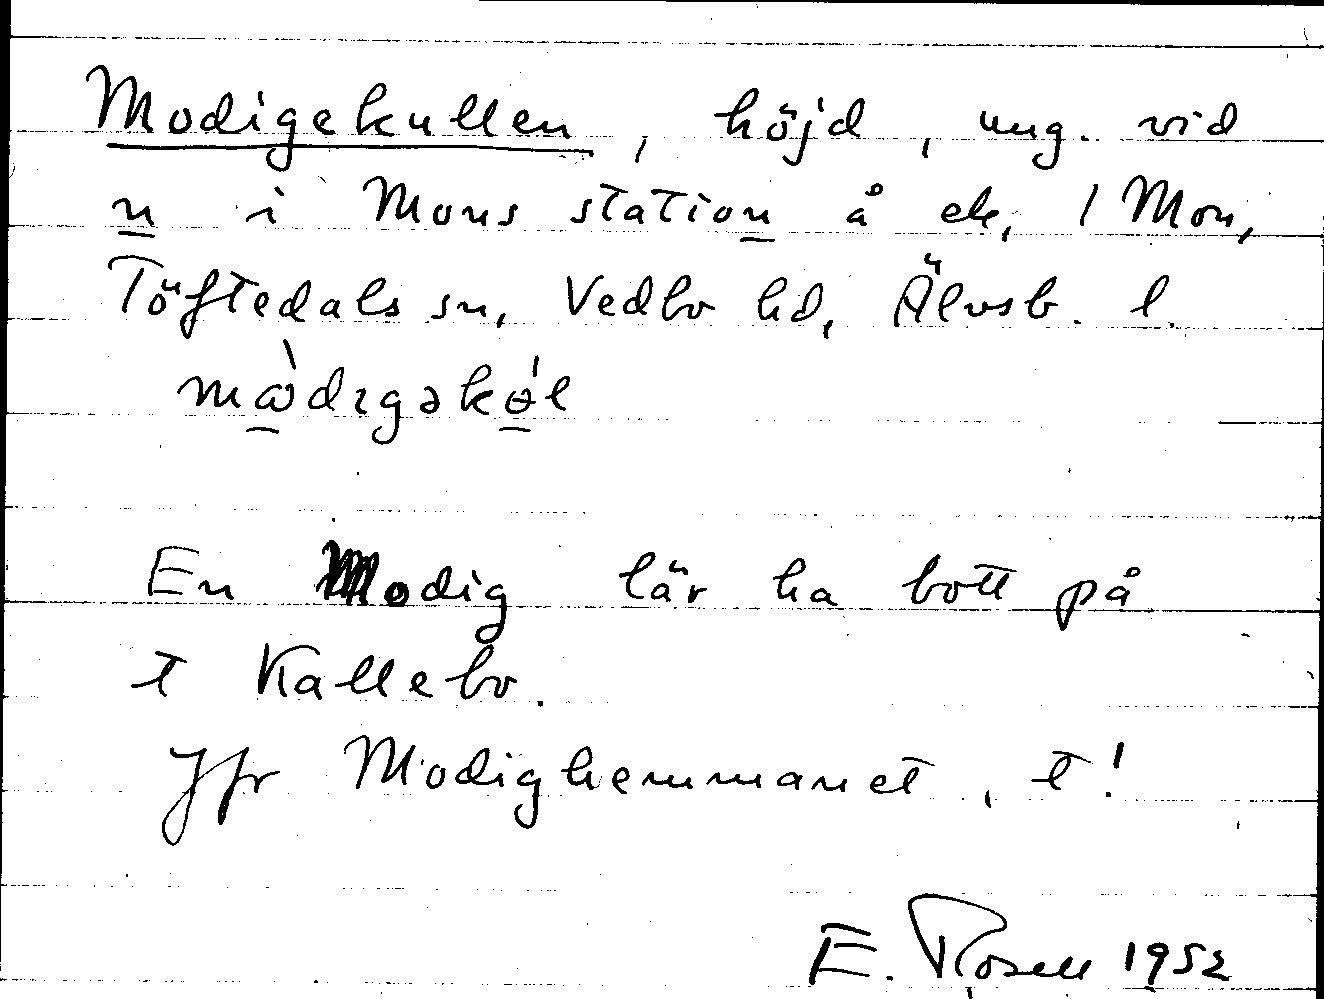 Modigekullen, höjd, ung. vid
n i Mons station å ek, 1 Mon,
Töftedals sn, Vedbo hd, Älvsb. l.
En Modig lär ha bott på
t Kallebo.
Jfr Modighemmanet, t!
E. Rosell 1952